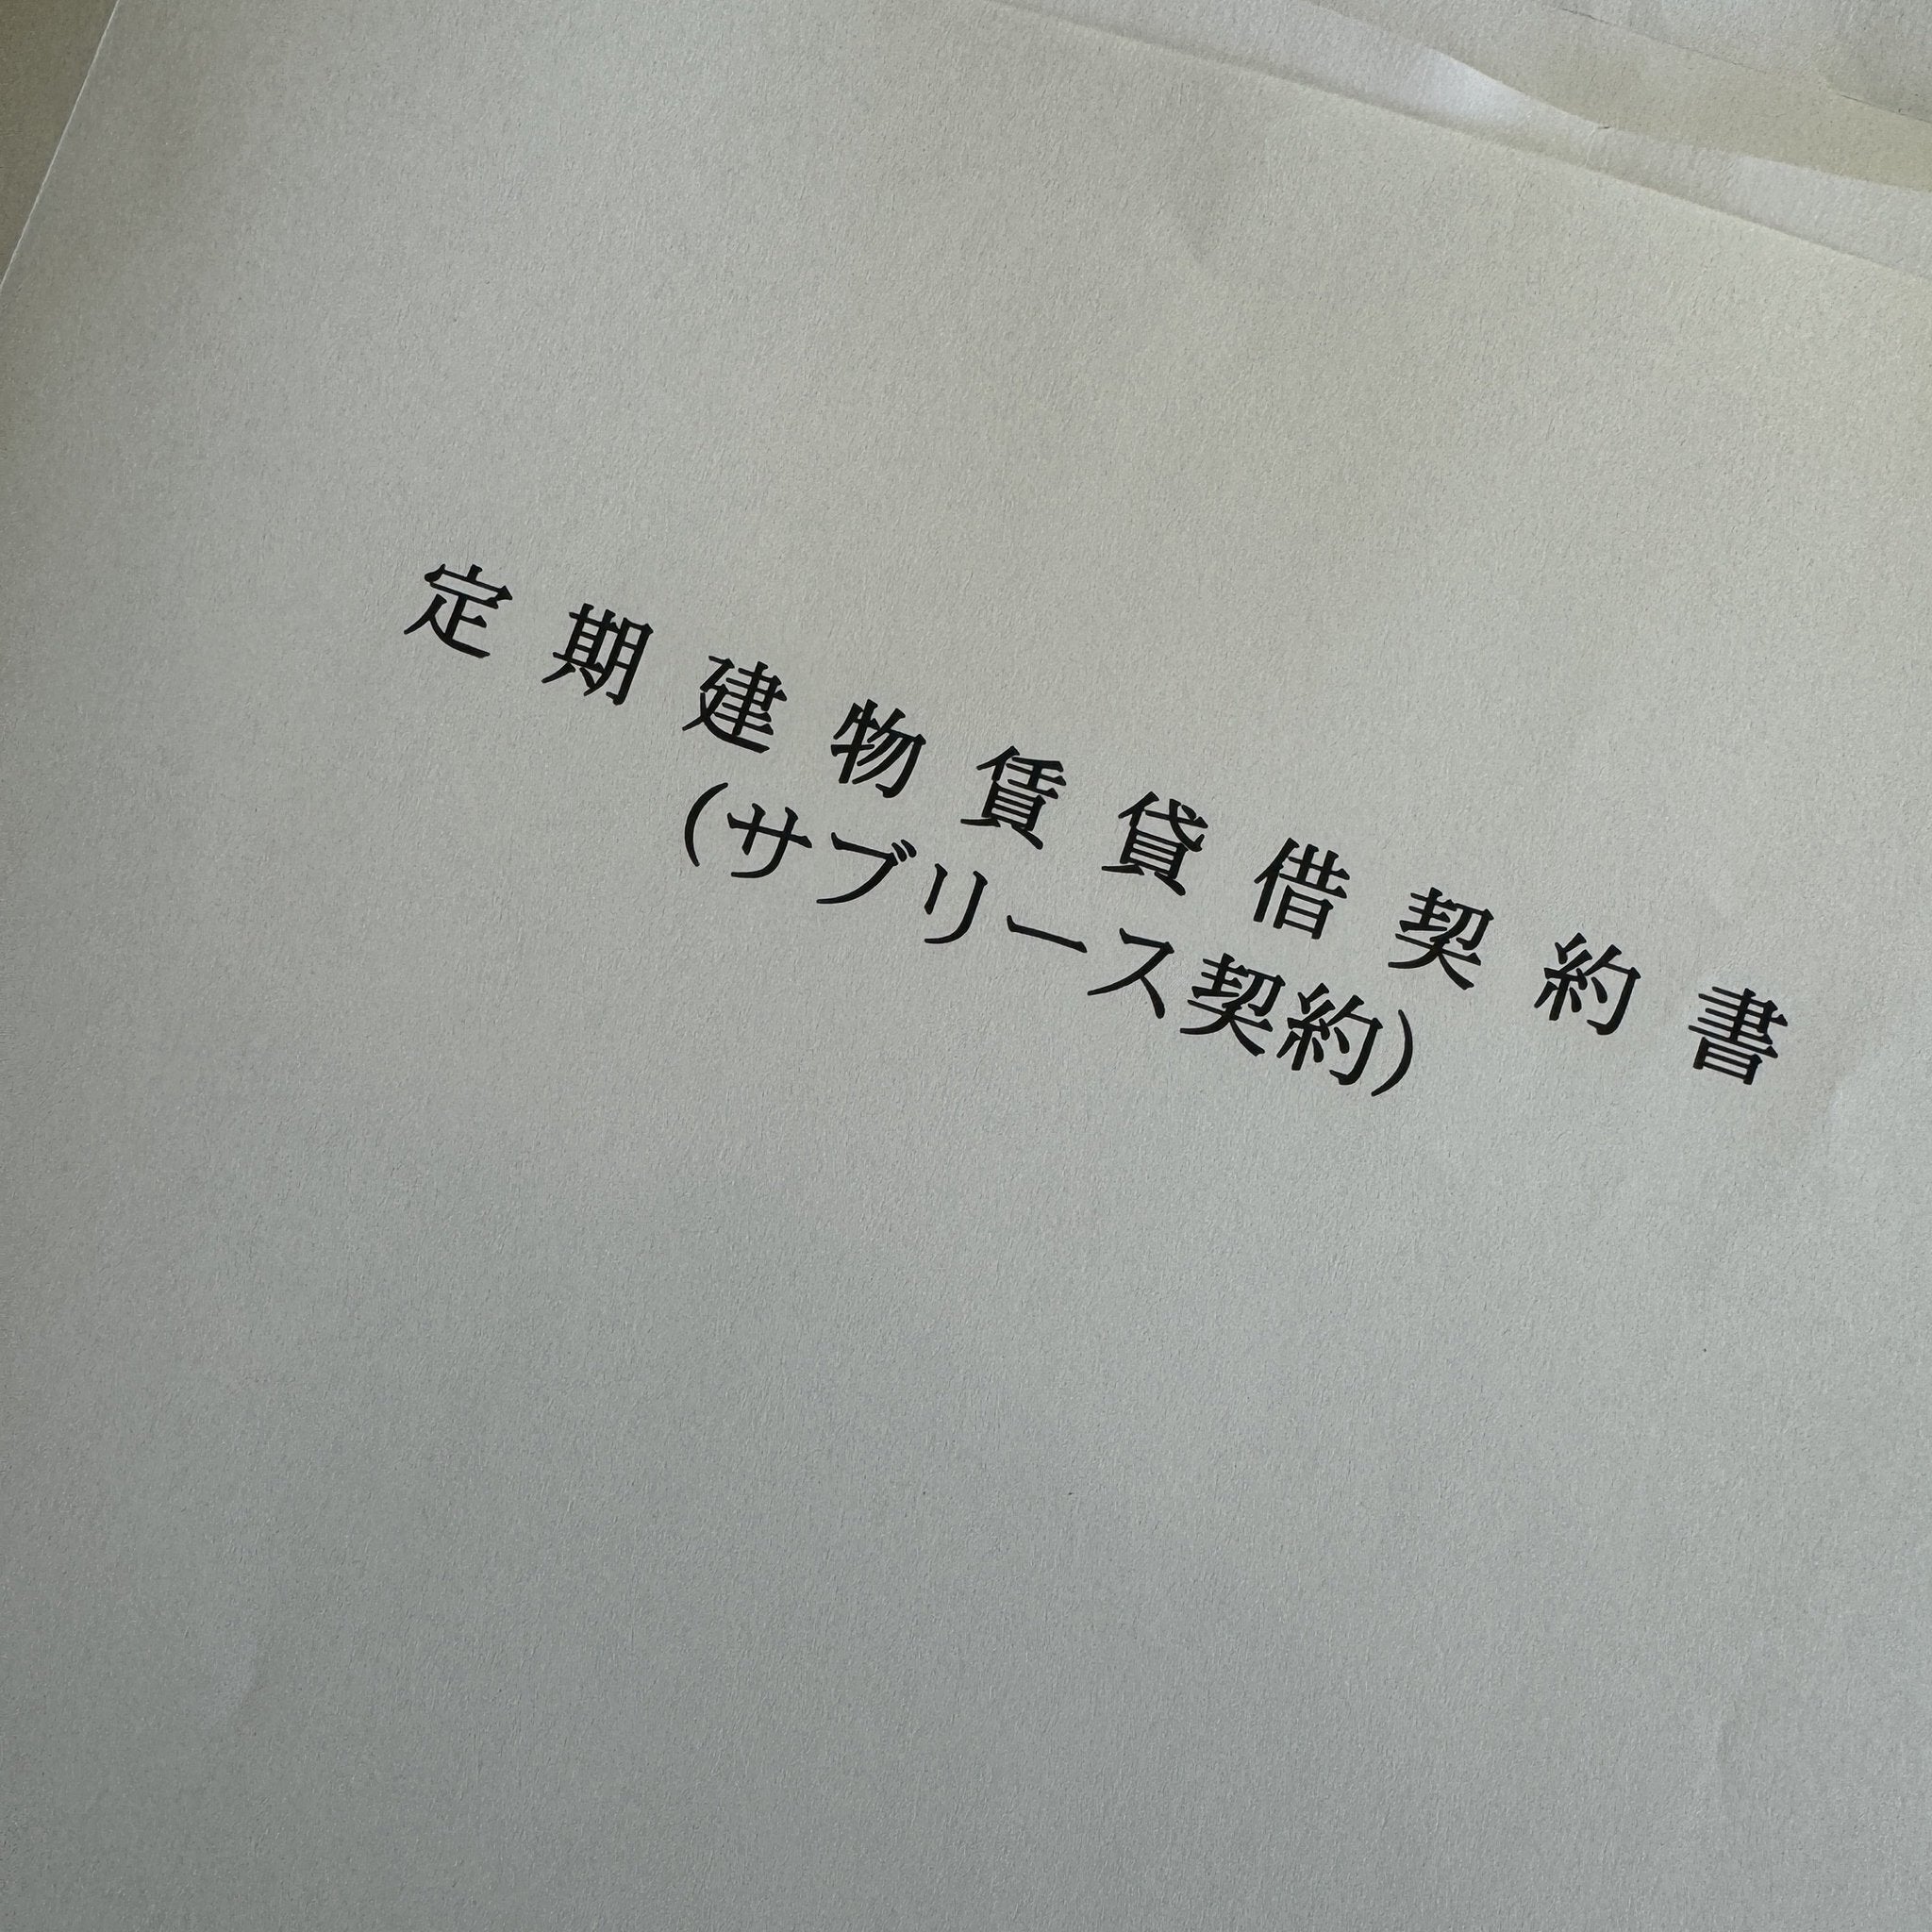 定期建物賃貸借契約書
(サブリース契約)